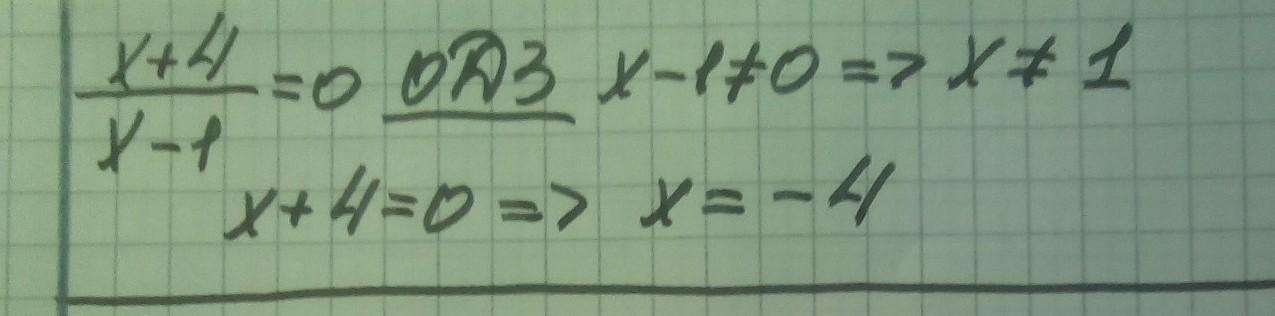 (x+4)/(x-1) =0 ОДЗ x-1≠0 => x≠1
x+4=0 => x=-4